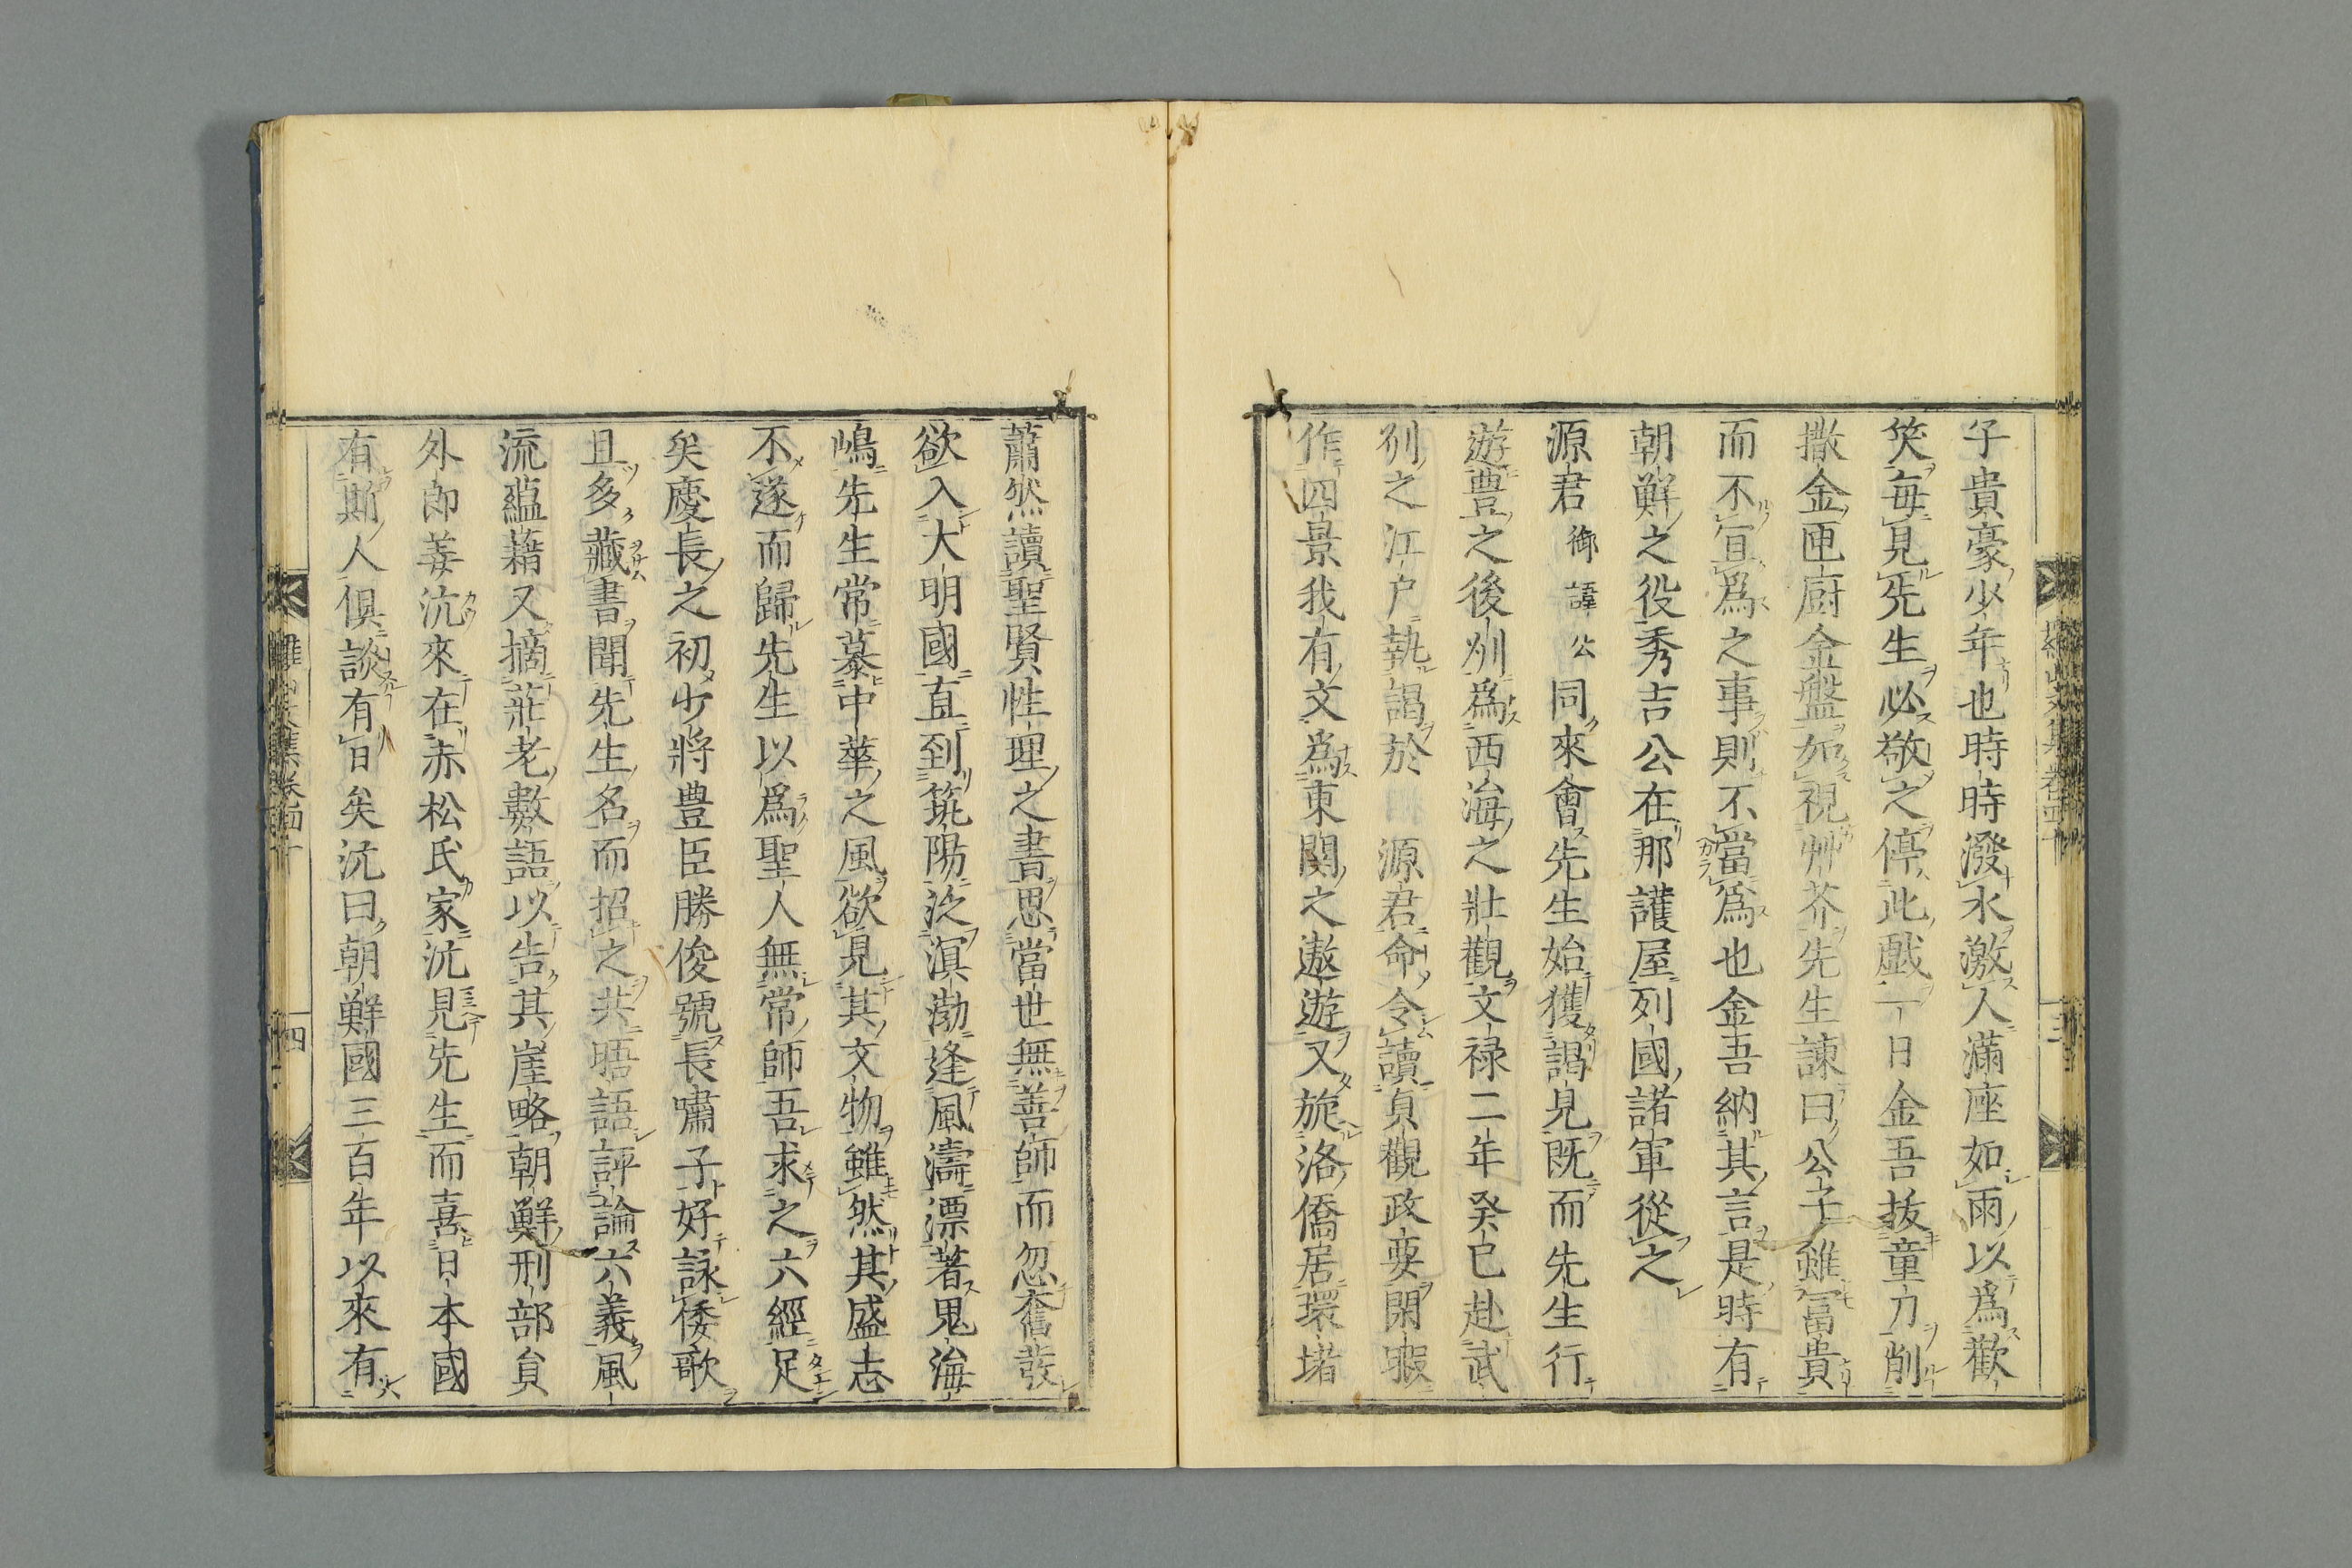 子貴豪少年也時時潑水激人滿座如雨以爲歡
笑每見先生必敬之停此戲一日金吾拔童刀削
撒金匣廚金盤如視艸芥先生諫曰公子雖冨貴
而不宜爲之事則不當爲也金吾納其言是時有
朝鮮之役秀吉公在那護屋列國諸軍從之
源君御諱公同來會先生始獲謁見既而先生行
遊豊之後州爲西海之壯觀文禄二年癸巳赴武
州之江戶執謁於源君命令讀貞觀政要閑暇
作四景我有文爲東関之遨遊又旋洛僑居環堵
蕭然讀聖賢性理之書思當世無善師而忽奮發
欲入大明國直到筑陽泛溟渤逢風濤漂著鬼海
嶋先生常慕中華之風欲見其文物雖然其盛志
不遂而歸先生以爲聖人無常師吾求之六經足
矣慶長之初少將豊臣勝俊號長嘯子好詠倭歌
且多藏書聞先生名而招之共晤語評論六義風
流蘊藉又摘莊老數語以告其崖略朝鮮刑部員
外郎姜沆來在赤松氏家沆見先生而喜日本國
有斯人俱談有日矣沆曰朝鮮國三百年以來有
羅山文集卷四十
三
四